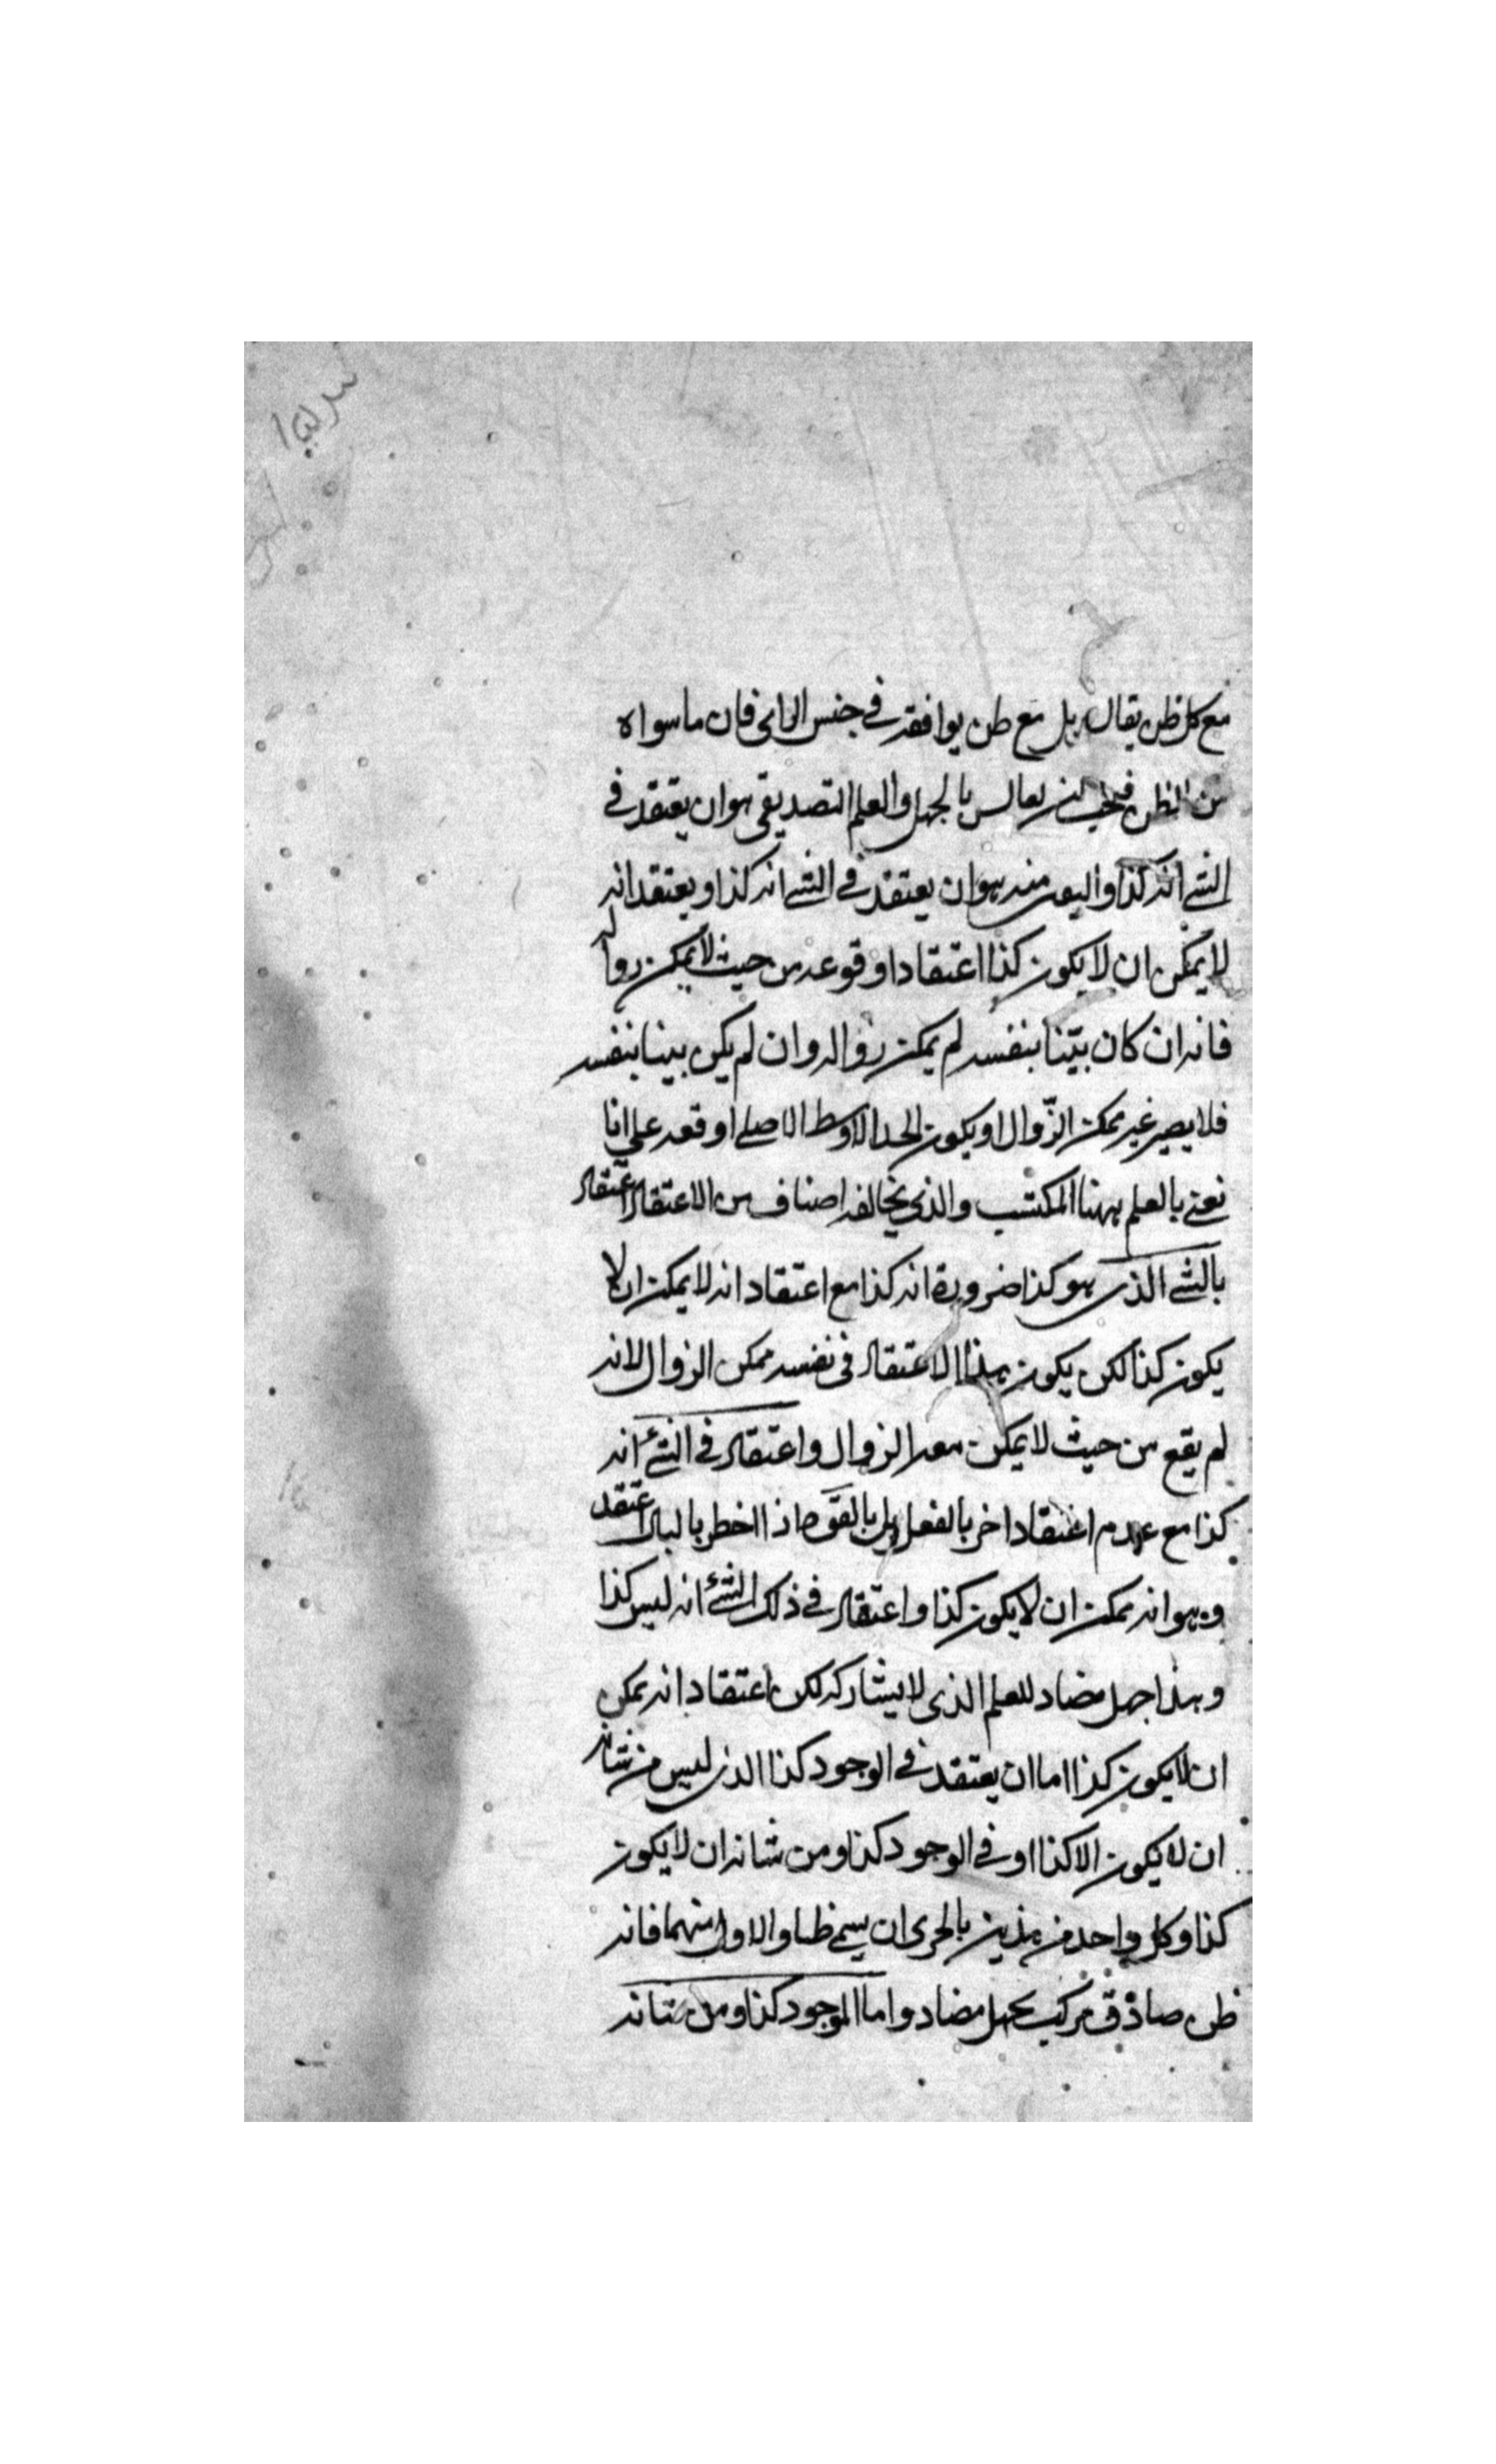 مع كل ظن يقال بل مع ظن يوافقه في جنس الراى فان ما سواه
من الظن بالجهل والعلم التصديقى هو ان يعتقد في
الشئ انه كذا واليقين منه هو ان يعتقد في الشئ انه كذا ويعتقد انه
لا يمكن ان لا يكون كذا اعتقادا وقوعه من حيث لا يمكن زواله
فانه ان كان بيّنا بنفسه لم يمكن زواله وان لم يكن بينا بنفسه
فلا يصير غير ممكن الزّوال او يكون الحد الاوسط الاصلى اوقعه على انا
نعنى بالعلم ههنا المكتسب والذى يخالفه اصناف من الاعتقاد اعتقاد
بالشئ الذى هو كذا ضرورة انه كذا مع اعتقاد انه لا يمكن ان لا
يكون كذا لكن يكون هذا الاعتقاد فى نفسه ممكن الزوال لانه
لم يقع من حيث لا يمكن معه الزوال واعتقاد في الشئ انه
كذا مع عدم اعتقاد اخر بالفعل بل بالقوة اذا اخطر بالبال اعتقد
وهو انه ممكن ان لا يكون كذا واعتقاد في ذلك الشئ انه ليس كذا
وهذا جهل مضاد للعلم الذى لا يشاركه لكن اعتقاد انه يمكن
ان لا يكون كذا اما ان يعتقد في الوجود كذا الذى ليس من شانه
ان لا يكون الا كذا او في الوجود كذا ومن شانه ان لا يكون
كذا وكل واحد من هذين بالحرى ان يسمى ظنا والاول منهما فانه
ظن صادق مركب بجهل مضاد واما الموجود كذا ومن شانه